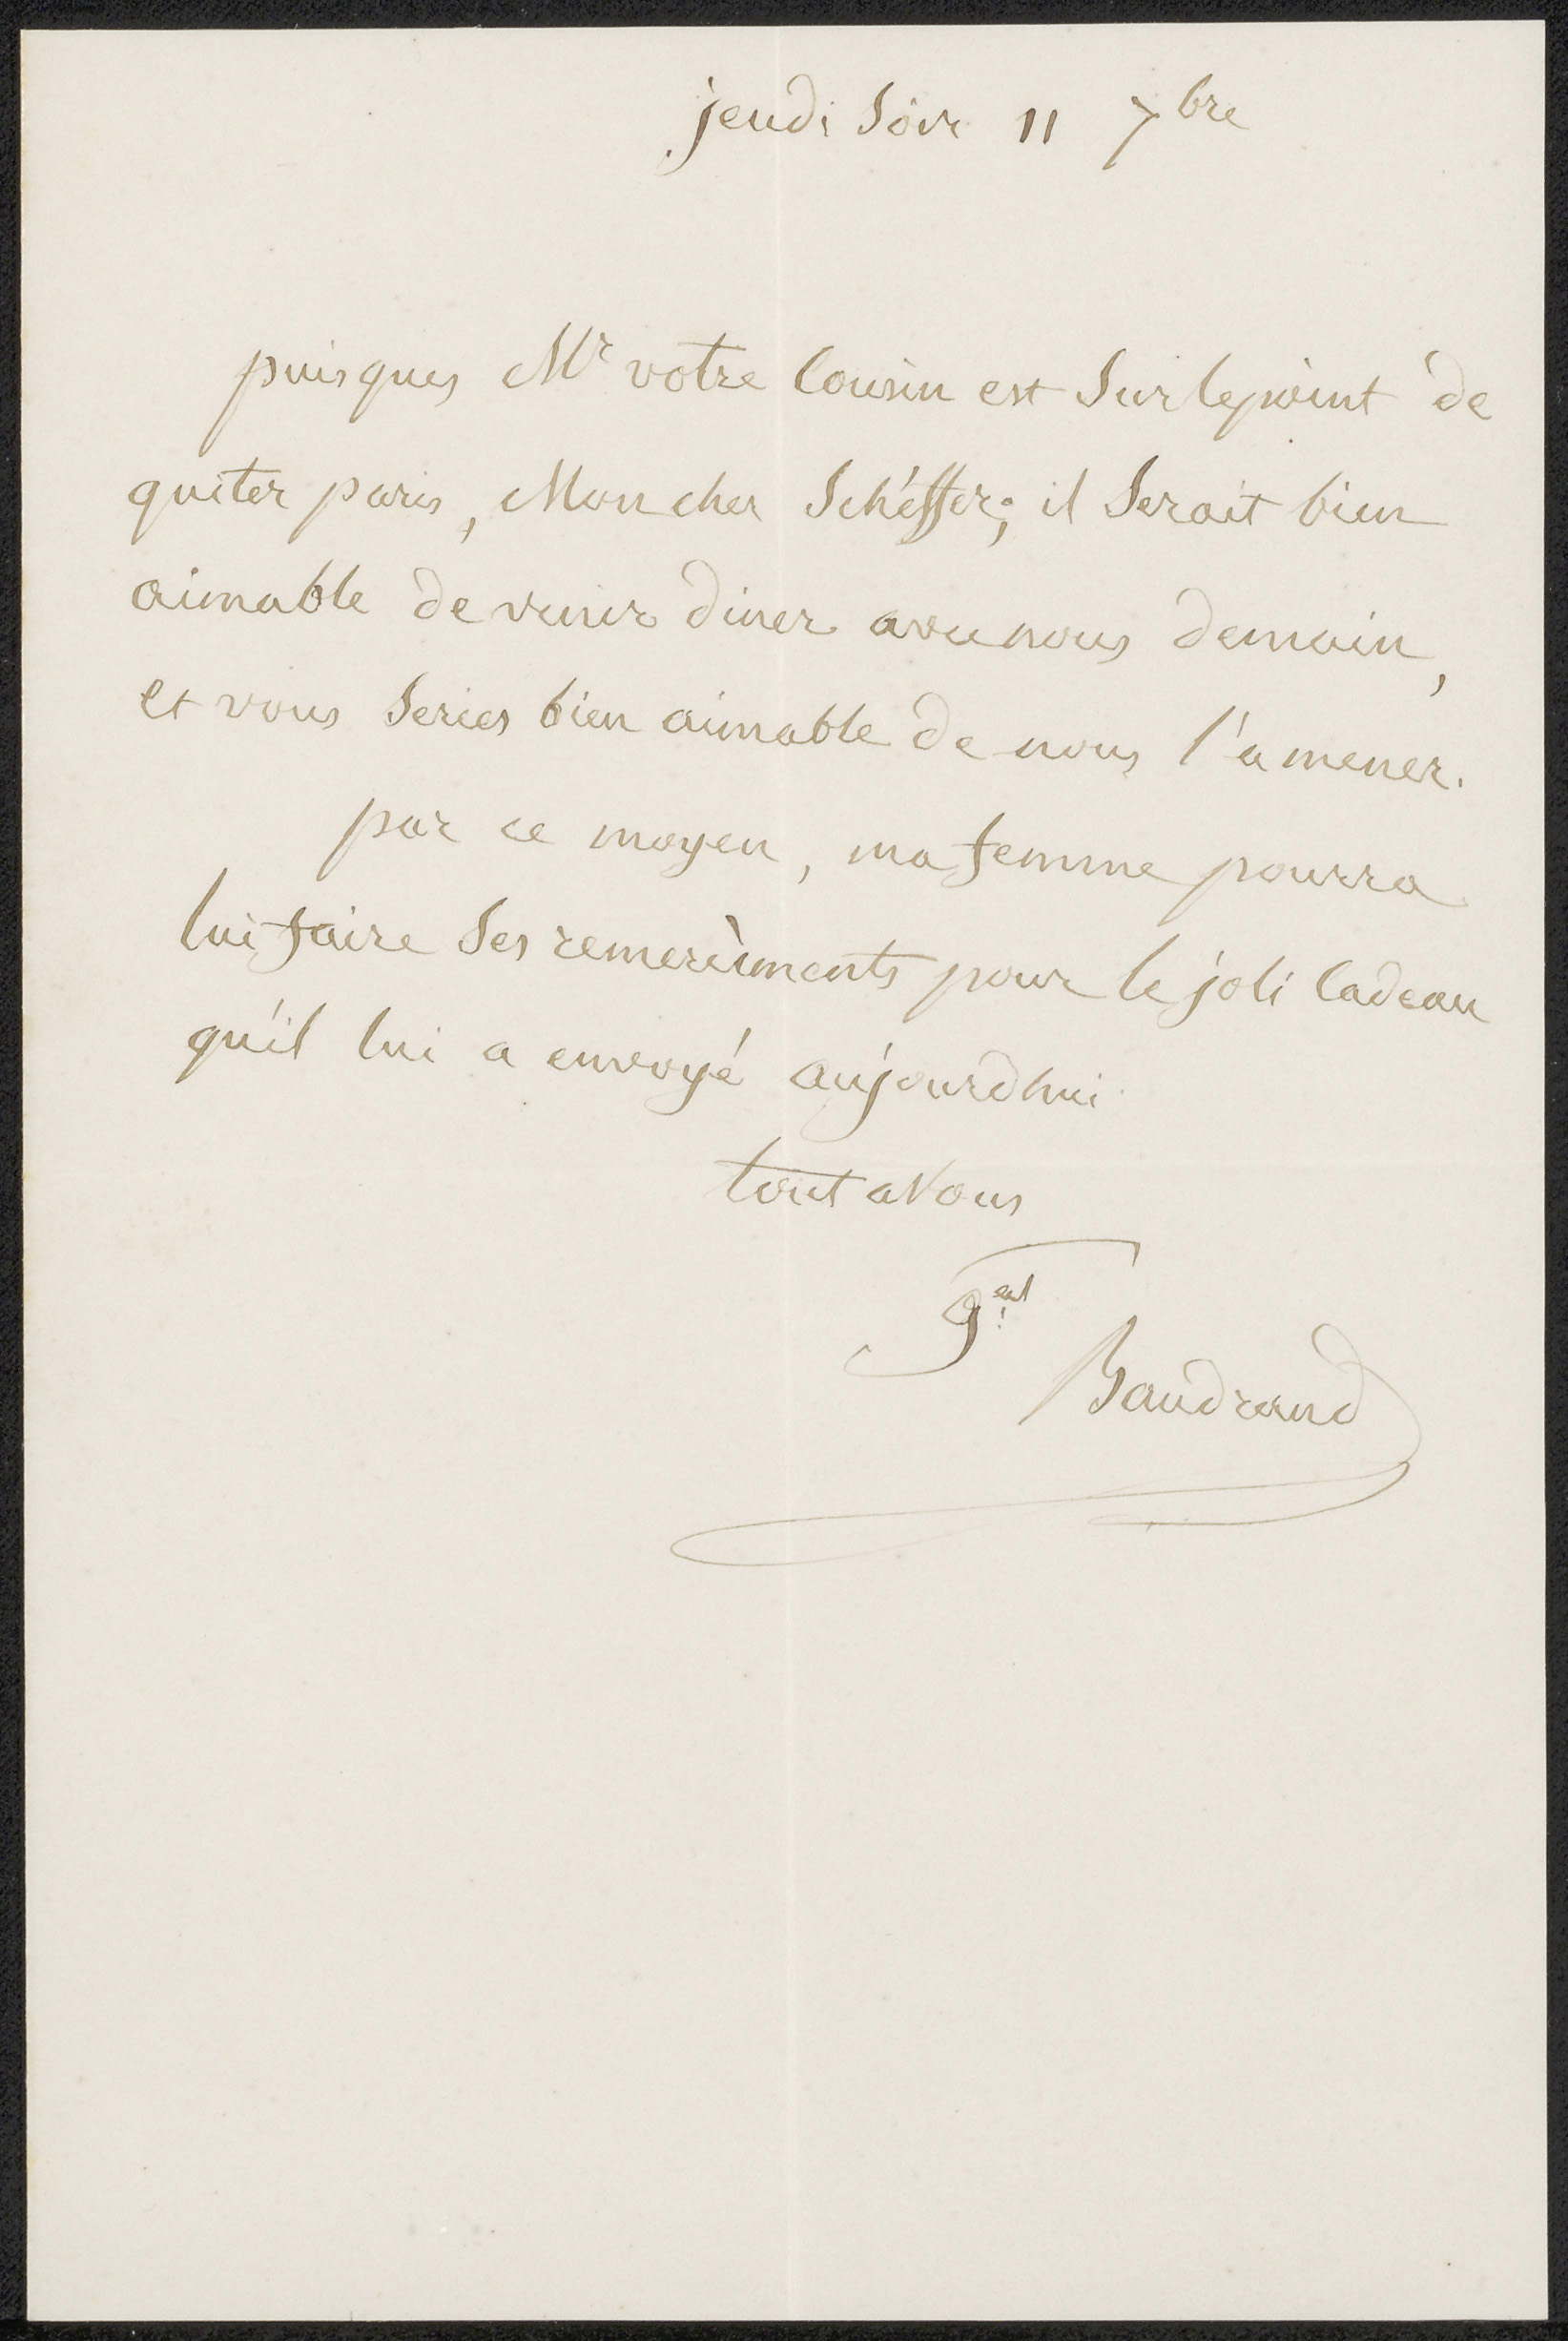 jeudi soir 11 7bre
puisques Mr votre Cousin est sur le point de
quiter paris, Mon cher Schéffer; il serait bien
aimable de venir diner avec nous demain,
et vous series bien aimable de nous l'amener.
par ce moyen, ma femme pourra
lui faire ses remerciments pour le joli Cadeau
qu'il lui a envoyé aujourdhui
tout a Vous
gal
Baudrand